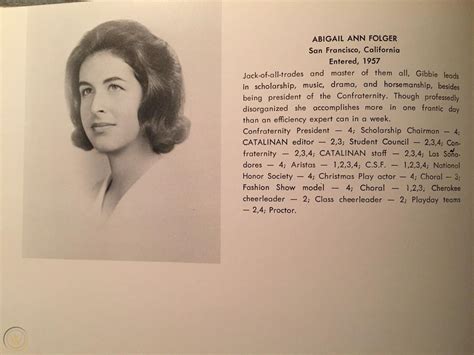 ABIGAIL ANN FOLGER
San Francisco, California
Entered, 1957
Jack-of-all-trades and master of them all, Gibbie leads
in scholarship, music, drama, and horsemanship, besides
being president of the Confraternity. Though professedly
disorganized she accomplishes more in one frantic day
than an efficiency expert can in a week.
Confraternity President — 4; Scholarship Chairman — 4;
CATALINAN editor — 2,3; Student Council — 2,3,4; Con-
fraternity — 2,3,4; CATALINAN staff — 2,3,4; Los Soña-
dores — 4; Aristas — 1,2,3,4; C.S.F. — 1,2,3,4; National
Honor Society — 4; Christmas Play actor — 4; Choral — 3;
Fashion Show model — 4; Choral — 1,2,3; Cherokee
cheerleader — 2; Class cheerleader — 2; Playday teams
— 2,4; Proctor.